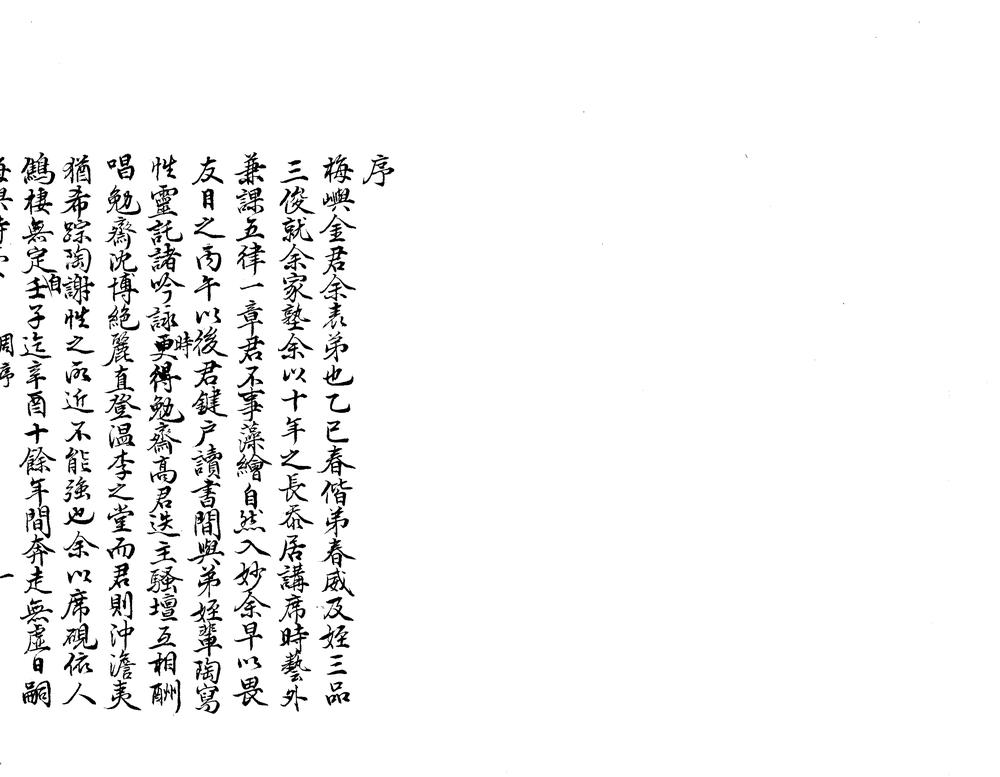 序
梅嶼金君余表弟也乙巳春偕弟春威及姪三品
三俊就余家塾余以十年之長忝居講席時藝外
兼課五律一章君不事藻繪自然入妙余早以畏
友目之丙午以後君鍵户讀書間與弟姪輩陶寫
性靈託諸吟詠時更得勉齋高君迭主騷壇互相酬
唱勉齋沈博絕麗直登温李之堂而君則沖澹夷
猶希踪陶謝性之所近不能強也余以席硯依人
鷦棲無定自壬子迄辛酉十餘年間奔走無虛日嗣
周序
一